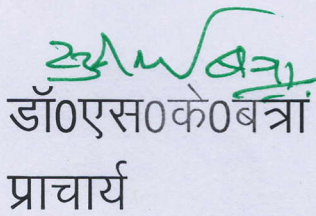 डॉ0एस0के0बत्रा
प्राचार्य